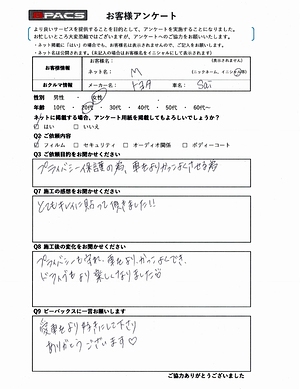 PACS お客様アンケート
より良いサービスをご提供する目的として、アンケートを実施することになりました。
お忙しいところ大変恐縮ではございますが、アンケートへのご協力をお願いいたします。
・ネット掲載に「はい」の場合でも、お客様名は表示されませんので、ご記入をお願いします。
・ネット名は公開されます。(未記入の場合はお客様名をイニシャルにして表示されます)
お客様情報 お客様名: (表示されません)
ネット名: M (ニックネーム、イニシャル等)
おクルマ情報 メーカー名: トヨタ 車名: Sai
性別 男性 ・ 女性
年齢 10代 ・ 20代 ・ 30代 ・ 40代 ・ 50代 ・ 60代～
ネットに掲載する場合、アンケート用紙を掲載してもよろしいでしょうか?
☑ はい □ いいえ
Q2 ご依頼内容
☑ フィルム □ セキュリティ □ オーディオ関係 □ ボディーコート
Q3 ご依頼目的をお聞かせください
プライバシー保護の為、車をよりかっこよくさせる為
Q7 施工の感想をお聞かせください
とてもキレイに貼って頂きました!!
Q8 施工後の変化をお聞かせください
プライバシーも守れ、車をよりかっこよくでき、
ドライブがより楽しくなりました
Q9 ピーパックスに一言お願いします
愛車をより好きにして下さり
ありがとうございます♡
ご協力ありがとうございました